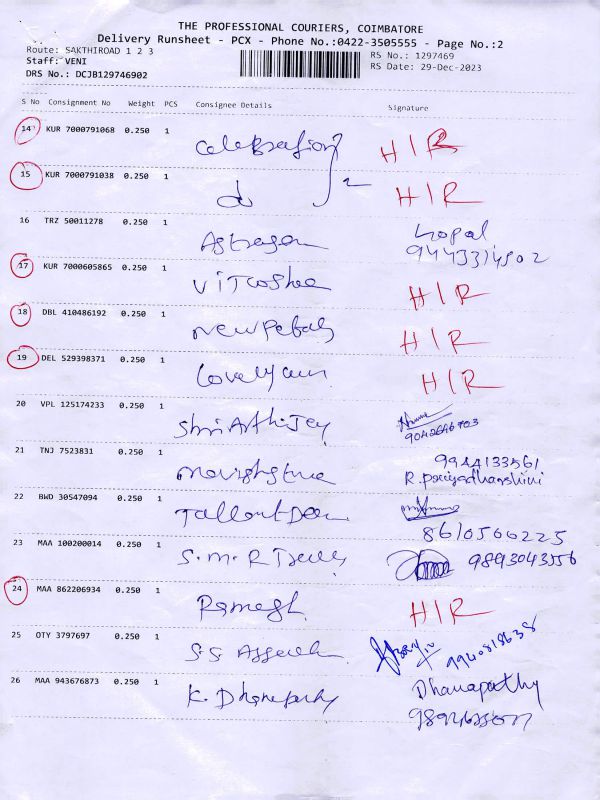 THE PROFESSIONAL COURIERS, COIMBATORE
Delivery Runsheet - PCX - Phone No.:0422-3505555 - Page No.:2
Route: SAKTHIROAD 1 2 3 RS No.: 1297469
Staff: VENI RS Date: 29-Dec-2023
DRS No.: DCJB129746902
S No Consignment No Weight PCS Consignee Details Signature
14 KUR 7000791068 0.250 1 Celebration H/R
15 KUR 7000791038 0.250 1 do 2 H/R
16 TRZ 50011278 0.250 1 Gopal
17 KUR 7000605865 0.250 1 H/R
18 DBL 410486192 0.250 1 New Petals H/R
19 DEL 529398371 0.250 1 H/R
20 VPL 125174233 0.250 1
21 TNJ 7523831 0.250 1 9944133561
R. Priyadharshini
22 BWD 30547094 0.250 1
8610560225
23 MAA 100200014 0.250 1 S.M.R 9893043556
24 MAA 862206934 0.250 1 Ramesh H/R
25 OTY 3797697 0.250 1 S.S 9940818638
26 MAA 943676873 0.250 1 K. Dhanapathy Dhanapathy